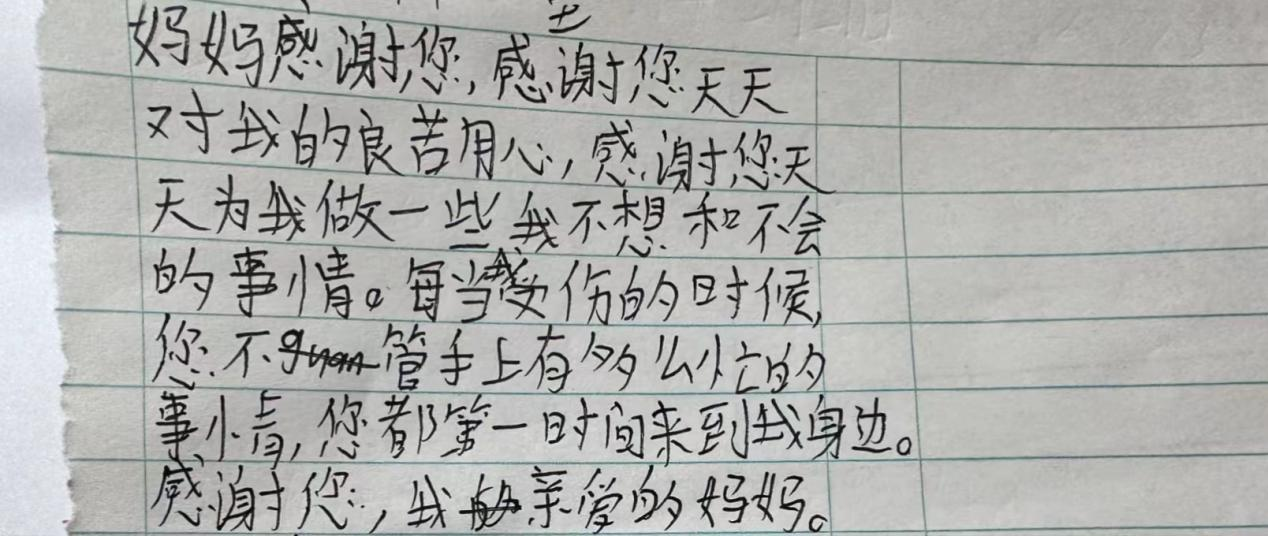 妈妈感谢您,感谢您天天
对我的良苦用心,感谢您天
天为我做一些我不想和不会
的事情。每当我受伤的时候,
您不管手上有多么忙的
事情,您都第一时间来到我身边。
感谢您,我亲爱的妈妈。